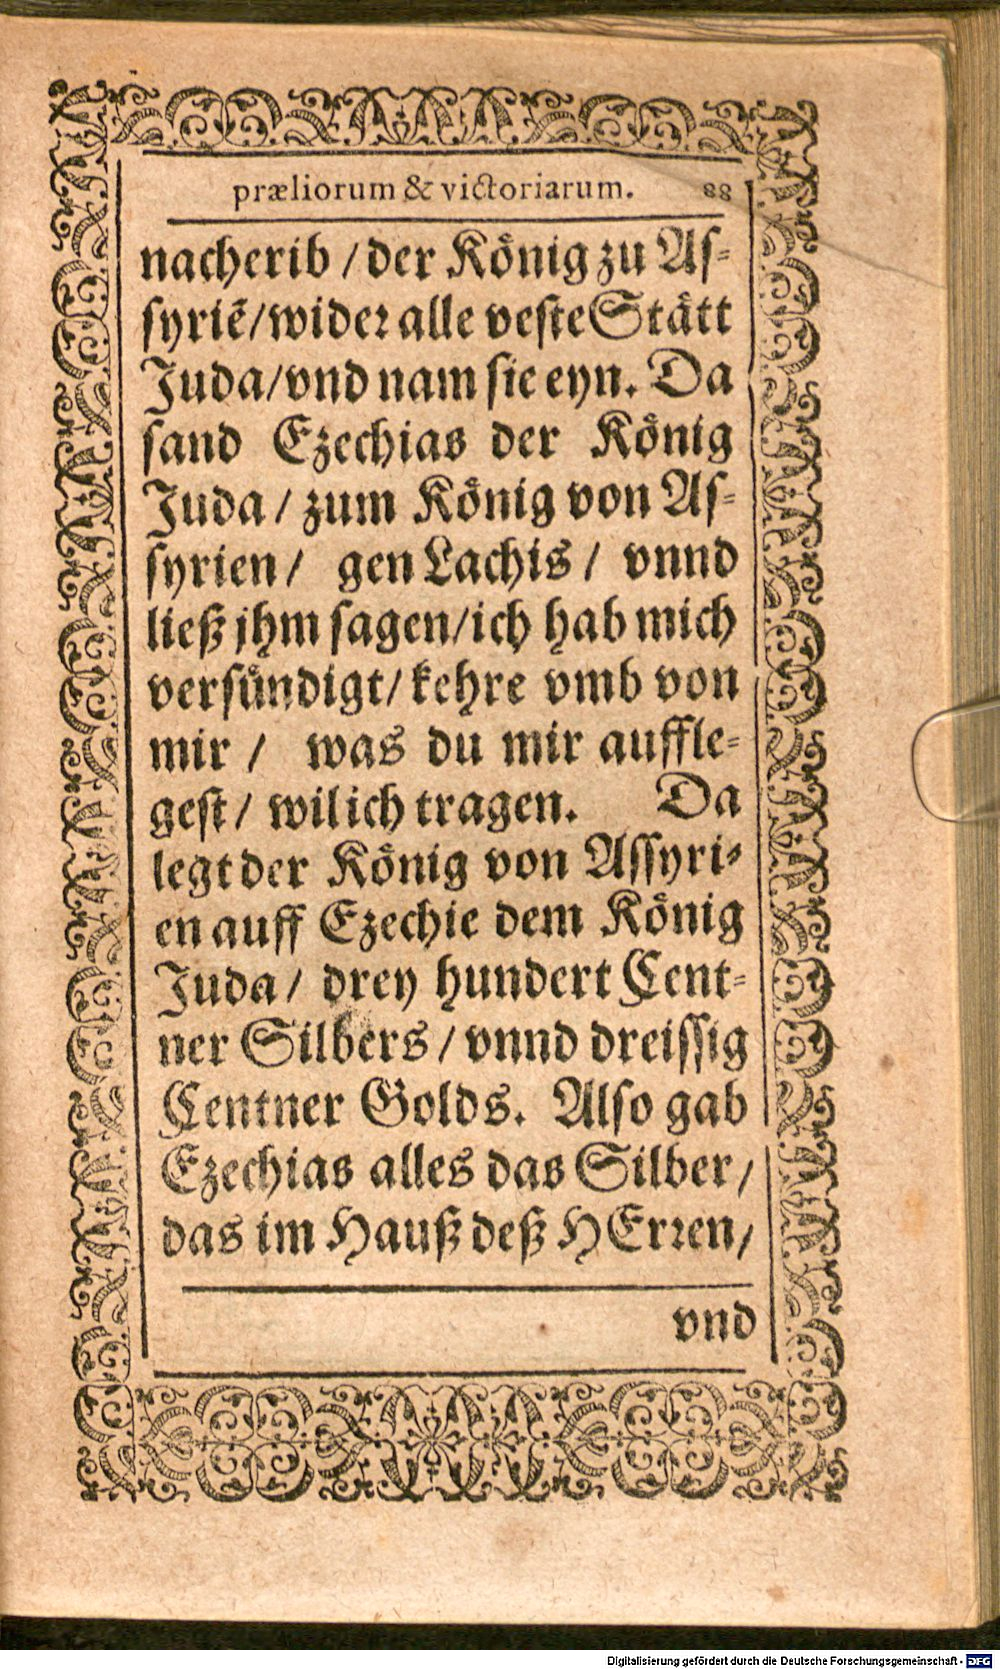 præliorum & victoriarum. 88
nacherib / der König zu Aſ-
ſyriẽ/wideꝛ alle veſte Stätt
Juda/vnd nam ſie eyn. Da
ſand Ezechias der König
Juda / zum König von Aſ-
ſyrien / gen Lachis / vnnd
ließ jhm ſagen/ich hab mich
verſündigt/ kehre vmb von
mir / was du mir auffle-
geſt / wil ich tragen. Da
legt der König von Aſſyri-
en auff Ezechie dem König
Juda / drey hundert Cent-
ner Silbers / vnnd dreiſſig
Centner Golds. Alſo gab
Ezechias alles das Silber /
das im Hauß deß HErꝛen /
vnd
Digitalisierung gefördert durch die Deutsche Forschungsgemeinschaft - DFG